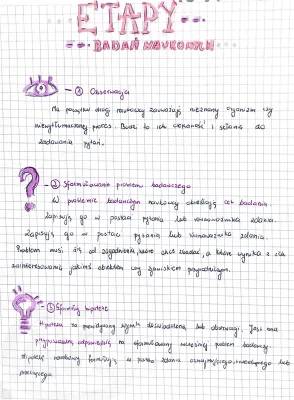 ETAPY
BADAŃ NAUKOWYCH
① Obserwacja
Na początku drogi naukowcy zauważają nieznany organizm czy
niewytłumaczony proces. Budzi to ich ciekawość i skłania do
zadawania pytań.
② Sformułowanie problemu badawczego
W problemie badawczym naukowcy określają cel badania
Zapisują go w postaci pytania lub równoważnika zdania.
Zapisują go w postaci pytania lub równoważnika zdania.
Problem musi się od zagadnienia, które chcą zbadać, a które wynika z
zainteresowania jakimś obiektem czy zjawiskiem przyrodniczym.
③ hipotezy
Hipoteza to wynik doświadczenia lub obserwacji. Jest ona
odpowiedzią na sformułowany wcześniej problem badawczy.
Hipotezę naukowcy formułują w postaci zdania oznajmującego, twierdzącego lub
przeczącego